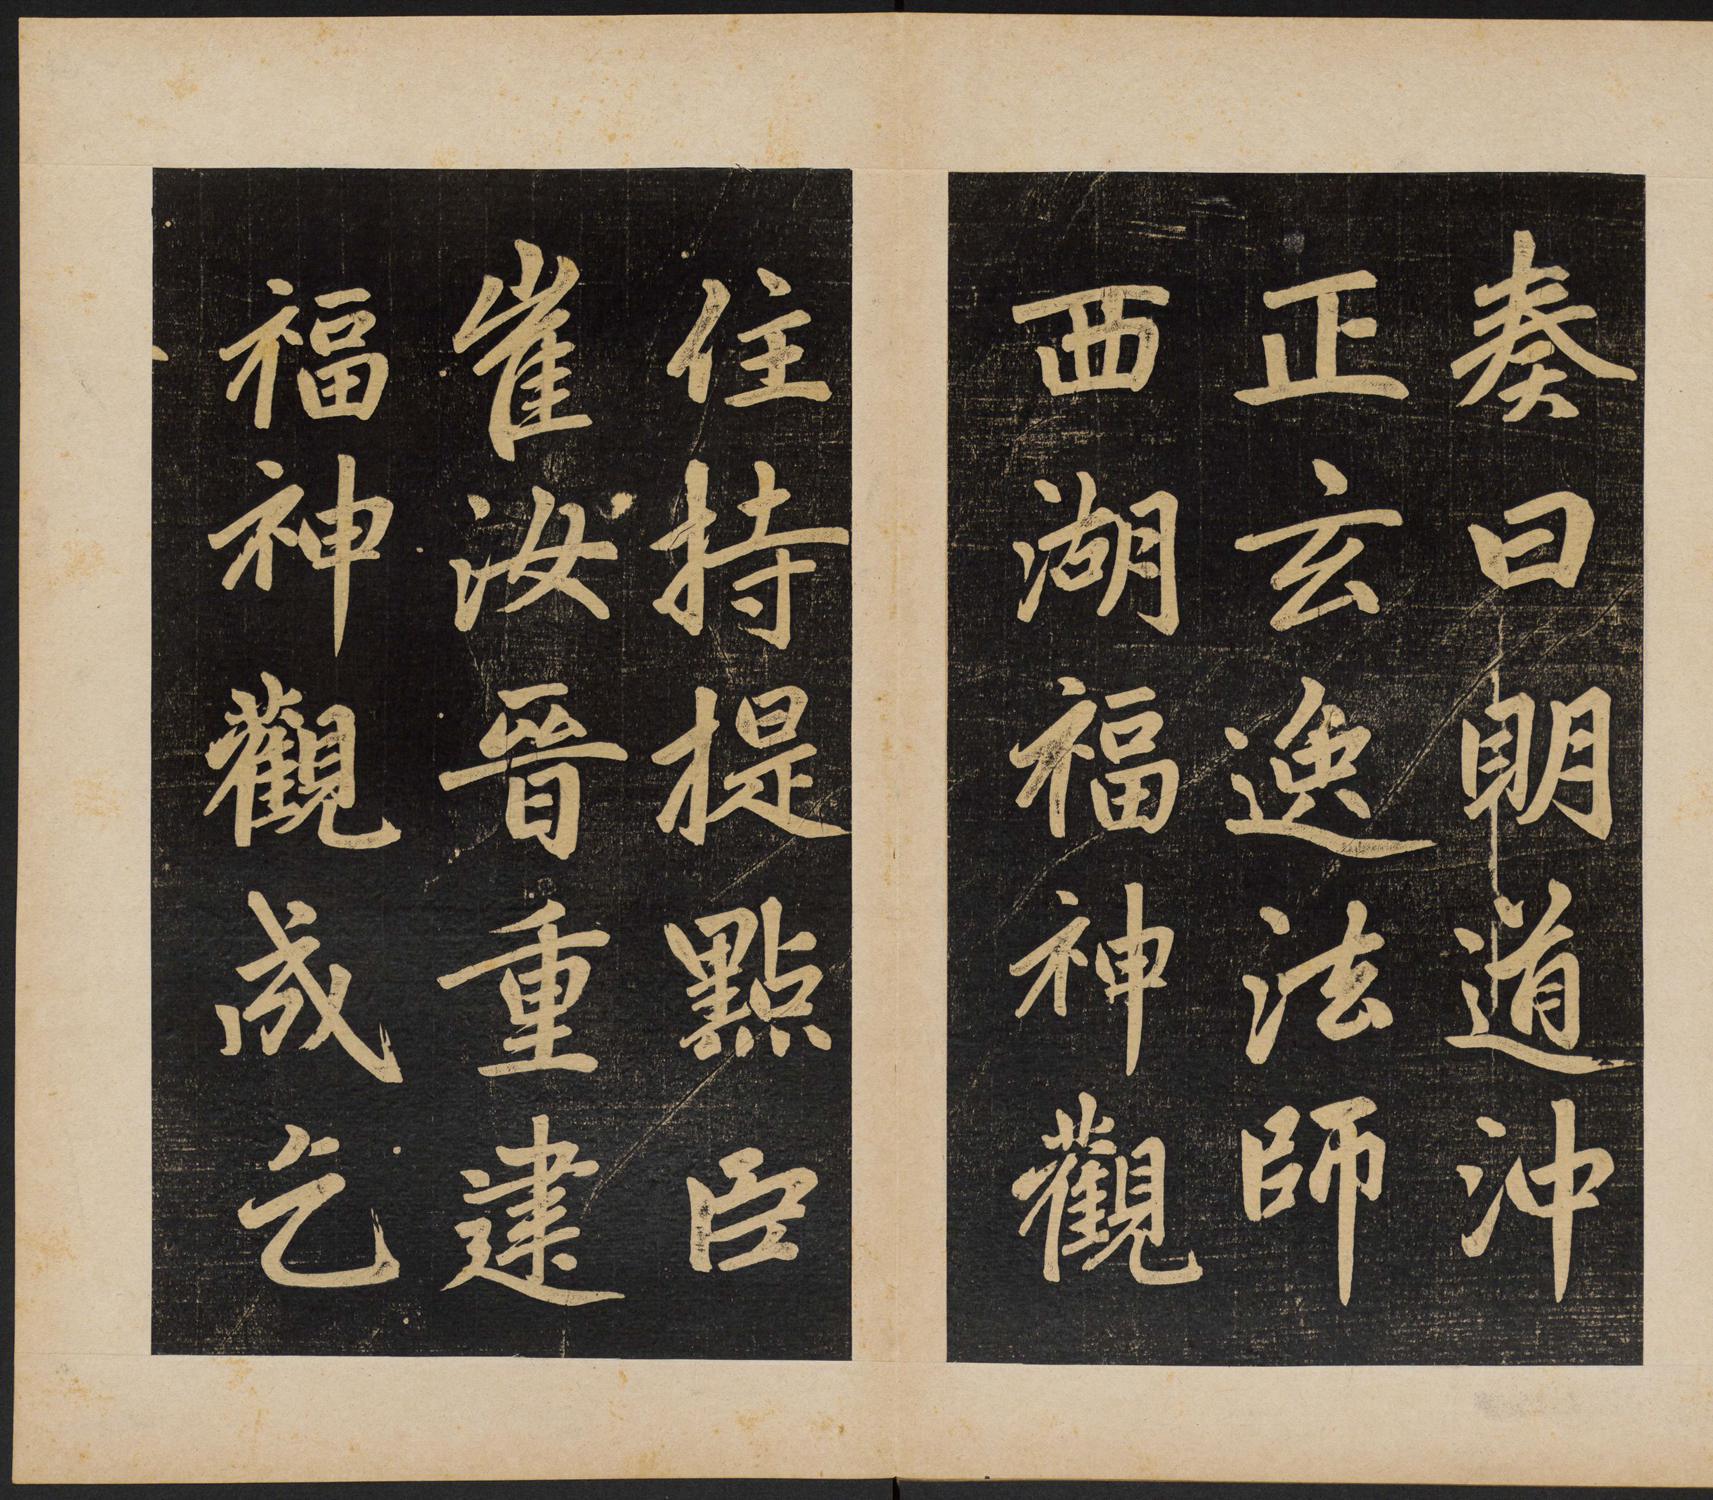 奏曰明道沖
正玄逸法師
西湖福神觀
住持提點臣
崔汝晉重建
福神觀成乞